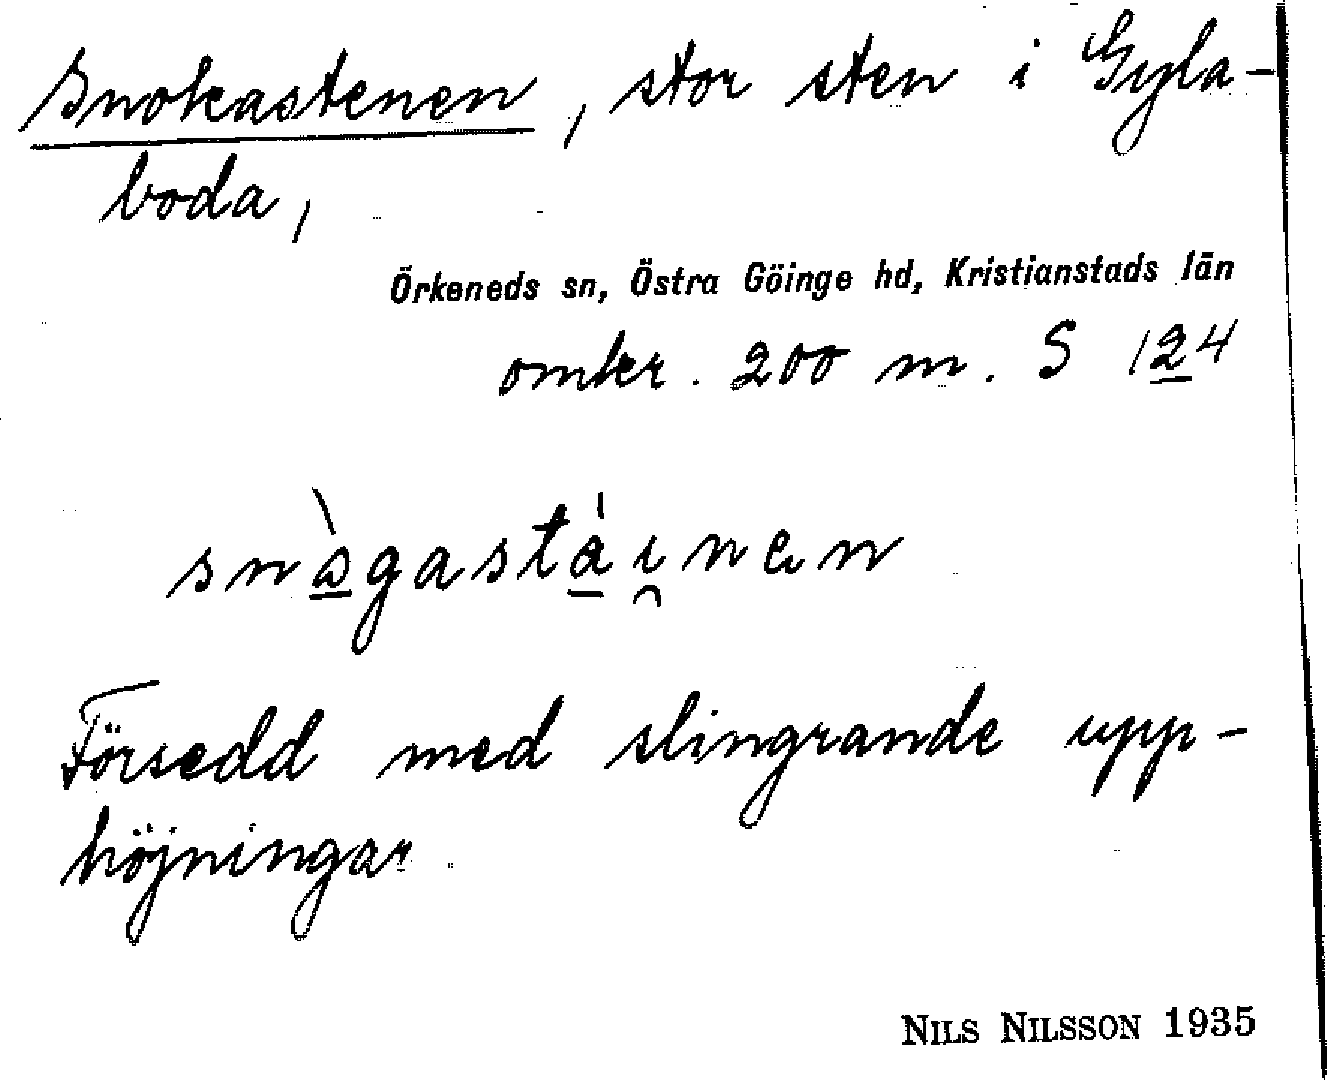 Snokastenen, stor sten i Gyla-
boda,
Örkeneds sn, Östra Göinge hd, Kristianstads län
omkr. 200 m. S 124
snàgastáinen
Försedd med slingrande upp-
höjningar
NILS NILSSON 1935